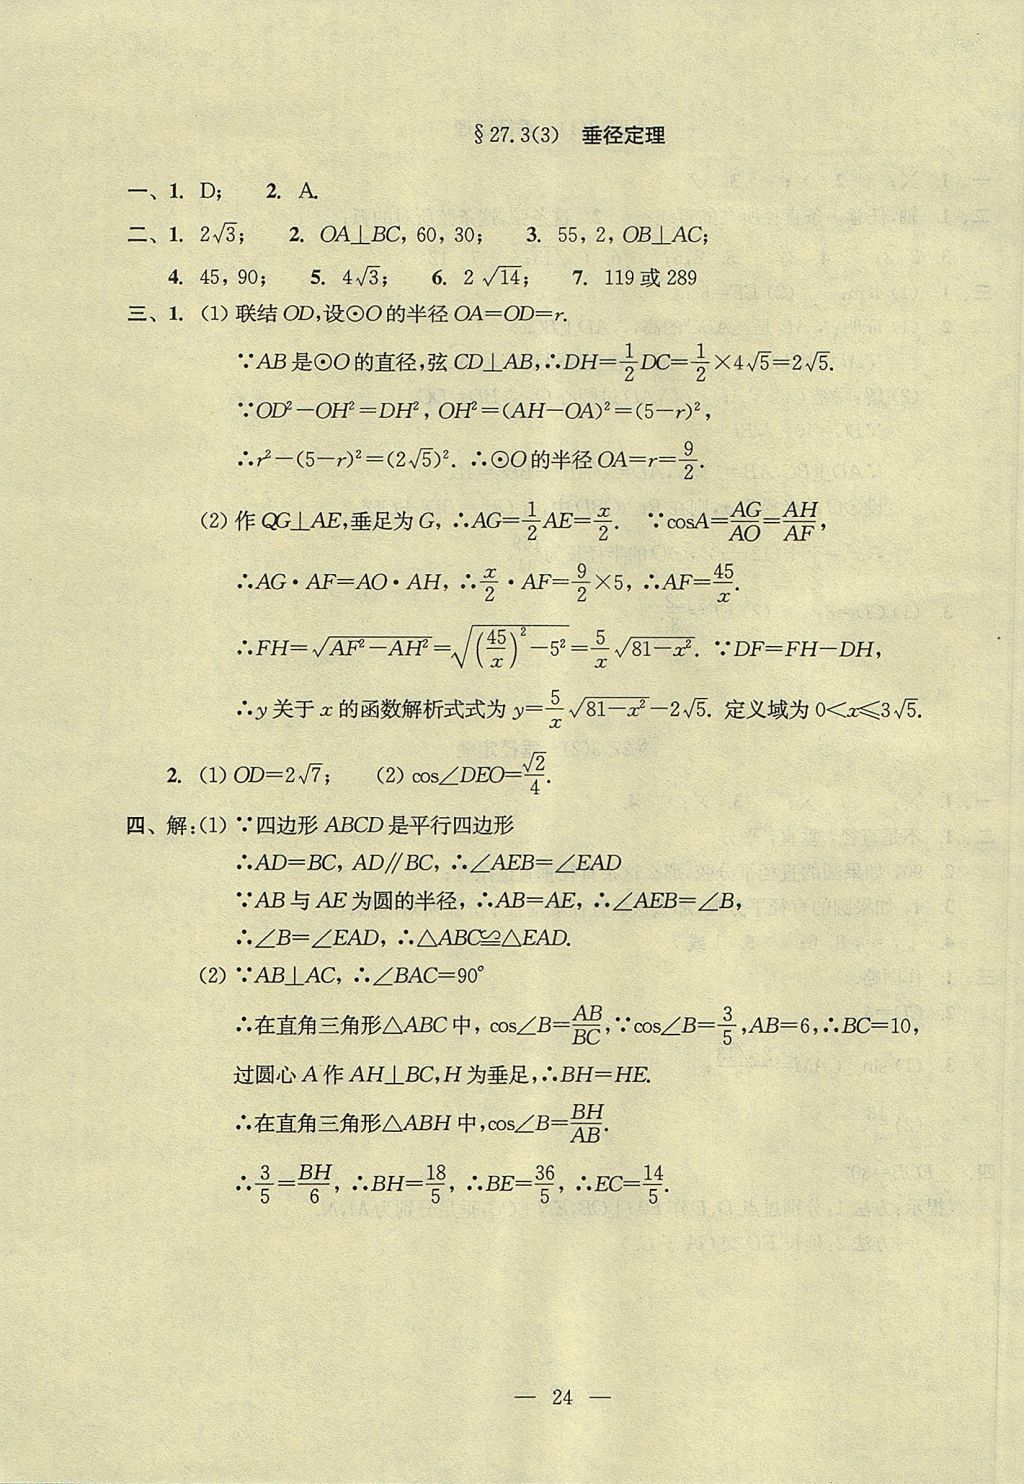 §27.3(3) 垂径定理
一、1. D; 2. A.
二、1. 2√3; 2. OA⊥BC, 60, 30; 3. 55, 2, OB⊥AC;
4. 45, 90; 5. 4√3; 6. 2√14; 7. 119或289
三、1. (1) 联结OD,设⊙O的半径OA=OD=r.
∵AB是⊙O的直径,弦CD⊥AB,∴DH=1/2DC=1/2×4√5=2√5.
∵OD²-OH²=DH², OH²=(AH-OA)²=(5-r)²,
∴r²-(5-r)²=(2√5)². ∴⊙O的半径OA=r=9/2.
(2) 作OG⊥AE,垂足为G, ∴AG=1/2AE=x/2. ∵cosA=AG/AO=AH/AF,
∴AG·AF=AO·AH, ∴x/2·AF=9/2×5, ∴AF=45/x.
∴FH=√(AF²-AH²)=√((45/x)²-5²)=5/x√(81-x²). ∵DF=FH-DH,
∴y关于x的函数解析式式为y=5/x√(81-x²)-2√5. 定义域为0<x≤3√5.
2. (1) OD=2√7; (2) cos∠DEO=√2/4.
四、解:(1) ∵四边形ABCD是平行四边形
∴AD=BC, AD∥BC, ∴∠AEB=∠EAD
∵AB与AE为圆的半径, ∴AB=AE, ∴∠AEB=∠B,
∴∠B=∠EAD, ∴△ABC≌△EAD.
(2) ∵AB⊥AC, ∴∠BAC=90°
∴在直角三角形△ABC中, cos∠B=AB/BC,∵cos∠B=3/5,AB=6,∴BC=10,
过圆心A作AH⊥BC,H为垂足,∴BH=HE.
∴在直角三角形△ABH中,cos∠B=BH/AB.
∴3/5=BH/6, ∴BH=18/5, ∴BE=36/5, ∴EC=14/5.
— 24 —